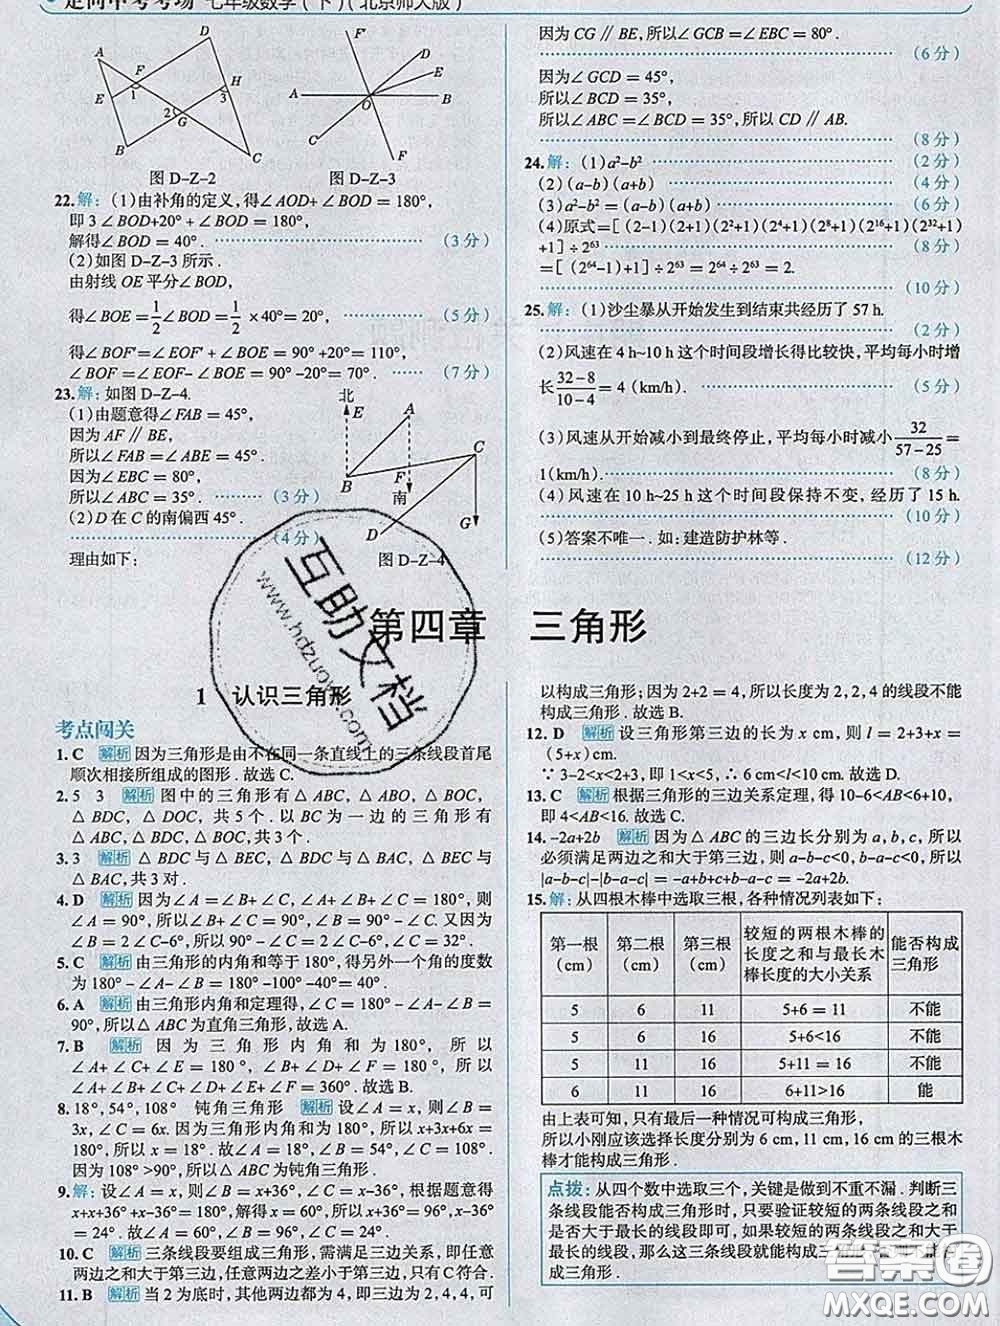 走向中考考场 七年级数学(下)(北京师大版)
A
D
F
E
1
H
3
2
G
B
C
图 D-Z-2
F′
D
E
A
O
B
C
F
图 D-Z-3
22.解:(1)由补角的定义,得∠AOD+∠BOD=180°,
即 3∠BOD+20°+∠BOD=180°,
解得∠BOD=40°. (3分)
(2)如图 D-Z-3 所示.
由射线 OE 平分∠BOD,
得∠BOE=1/2∠BOD=1/2×40°=20°, (5分)
得∠BOF′=∠EOF′+∠BOE=90°+20°=110°,
∠BOF=∠EOF-∠BOE=90°-20°=70°. (7分)
23.解:如图 D-Z-4.
(1)由题意得∠FAB=45°,
因为 AF∥BE,
所以∠FAB=∠ABE=45°.
因为∠EBC=80°,
所以∠ABC=35°. (3分)
(2)D 在 C 的南偏西 45°.
(4分)
理由如下:
北
E
A
C
B
F
南
D
G
图 D-Z-4
因为 CG∥BE,所以∠GCB=∠EBC=80°.
(6分)
因为∠GCD=45°,
所以∠BCD=35°,
所以∠ABC=∠BCD=35°,所以 CD∥AB.
(8分)
24.解:(1)a²-b² (2分)
(2)(a-b)(a+b) (4分)
(3)a²-b²=(a-b)(a+b) (6分)
(4)原式=[(2-1)(2+1)(2²+1)(2⁴+1)(2⁸+1)(2¹⁶+1)(2³²+1)
+1]÷2⁶³ (8分)
=[(2⁶⁴-1)+1]÷2⁶³=2⁶⁴÷2⁶³=2.
(10分)
25.解:(1)沙尘暴从开始发生到结束共经历了 57 h.
(2分)
(2)风速在 4 h~10 h 这个时间段增长得比较快,平均每小时增
长(32-8)/(10-4)=4(km/h). (5分)
(3)风速从开始减小到最终停止,平均每小时减小32/(57-25)=
1(km/h). (8分)
(4)风速在 10 h~25 h 这个时间段保持不变,经历了 15 h.
(10分)
(5)答案不唯一.如:建造防护林等. (12分)
第四章 三角形
1 认识三角形
考点闯关
1.C 解析 因为三角形是由不在同一条直线上的三条线段首尾
顺次相接所组成的图形.故选 C.
2.5 3 解析 图中的三角形有△ABC,△ABO,△BOC,
△BDC,△DOC,共 5 个.以 BC 为一边的三角形有
△ABC,△BDC,△BOC,共 3 个.
3.3 解析 △BDC 与△BEC,△BDC 与△BAC,△BEC 与
△BAC,共 3 对.
4.D 解析 因为∠A=∠B+∠C,∠A+∠B+∠C=180°,则
∠A=90°,所以∠B+∠C=90°,所以∠B=90°-∠C.又因为
∠B=2∠C-6°,所以 90°-∠C=2∠C-6°,所以∠C=32°.
5.C 解析 由三角形的内角和等于 180°,得另外一个角的度数
为 180°-∠A-∠B=180°-100°-40°=40°.
6.A 解析 由三角形内角和定理得,∠C=180°-∠A-∠B=
90°,所以△ABC 为直角三角形,故选 A.
7.B 解析 因为三角形内角和为 180°,所以
∠A+∠C+∠E=180°,∠B+∠D+∠F=180°,所以
∠A+∠B+∠C+∠D+∠E+∠F=360°.故选 B.
8.18°,54°,108° 钝角三角形 解析 设∠A=x,则∠B=
3x,∠C=6x.因为三角形内角和为 180°,所以 x+3x+6x=
180°,所以 x=18°.故∠A=18°,∠B=54°,∠C=108°.
因为 108°>90°,所以△ABC 为钝角三角形.
9.解:设∠A=x,则∠B=x+36°,∠C=x-36°,根据题意得
x+x+36°+x-36°=180°,解得 x=60°,所以∠C=x-36°=60°-36°
=24°.故∠A=60°,∠B=96°,∠C=24°.
10.C 解析 三条线段要组成三角形,需满足三边关系,即任意
两边之和大于第三边,任意两边之差小于第三边,只有 C 符合.
11.B 解析 当 2 为底时,其他两边都为 4,即三边为 2,4,4,可
以构成三角形;因为 2+2=4,所以长度为 2,2,4 的线段不能
构成三角形.故选 B.
12.D 解析 设三角形第三边的长为 x cm,则 l=2+3+x=
(5+x)cm.
∵3-2<x<2+3,即 1<x<5,∴6 cm<l<10 cm.故选 D.
13.C 解析 根据三角形的三边关系定理,得 10-6<AB<6+10,
即 4<AB<16.故选 C.
14.-2a+2b 解析 因为△ABC 的三边长分别为 a,b,c,所以
必须满足两边之和大于第三边,则 a-b-c<0,b-a-c<0,所以
|a-b-c|-|b-a-c|=-a+b+c+b-a-c=-2a+2b.
15.解:从四根木棒中选取三根,各种情况列表如下:
第一根(cm) 第二根(cm) 第三根(cm) 较短的两根木棒的长度之和与最长木棒长度的大小关系 能否构成三角形
5 6 11 5+6=11 不能
5 6 16 5+6<16 不能
5 11 16 5+11=16 不能
6 11 16 6+11>16 能
由上表可知,只有最后一种情况可构成三角形,
所以小刚应该选择长度分别为 6 cm,11 cm,16 cm 的三根木
棒才能构成三角形.
点拨:从四个数中选取三个,关键是做到不重不漏.判断三
条线段能否构成三角形时,只要验证较短的两条线段之和
是否大于最长的线段即可,如果较短的两条线段之和大于
最长的线段,那么这三条线段就能构成三
成三角形.
互助文档
www.hdzuoye.com
答案圈
MXQE.COM